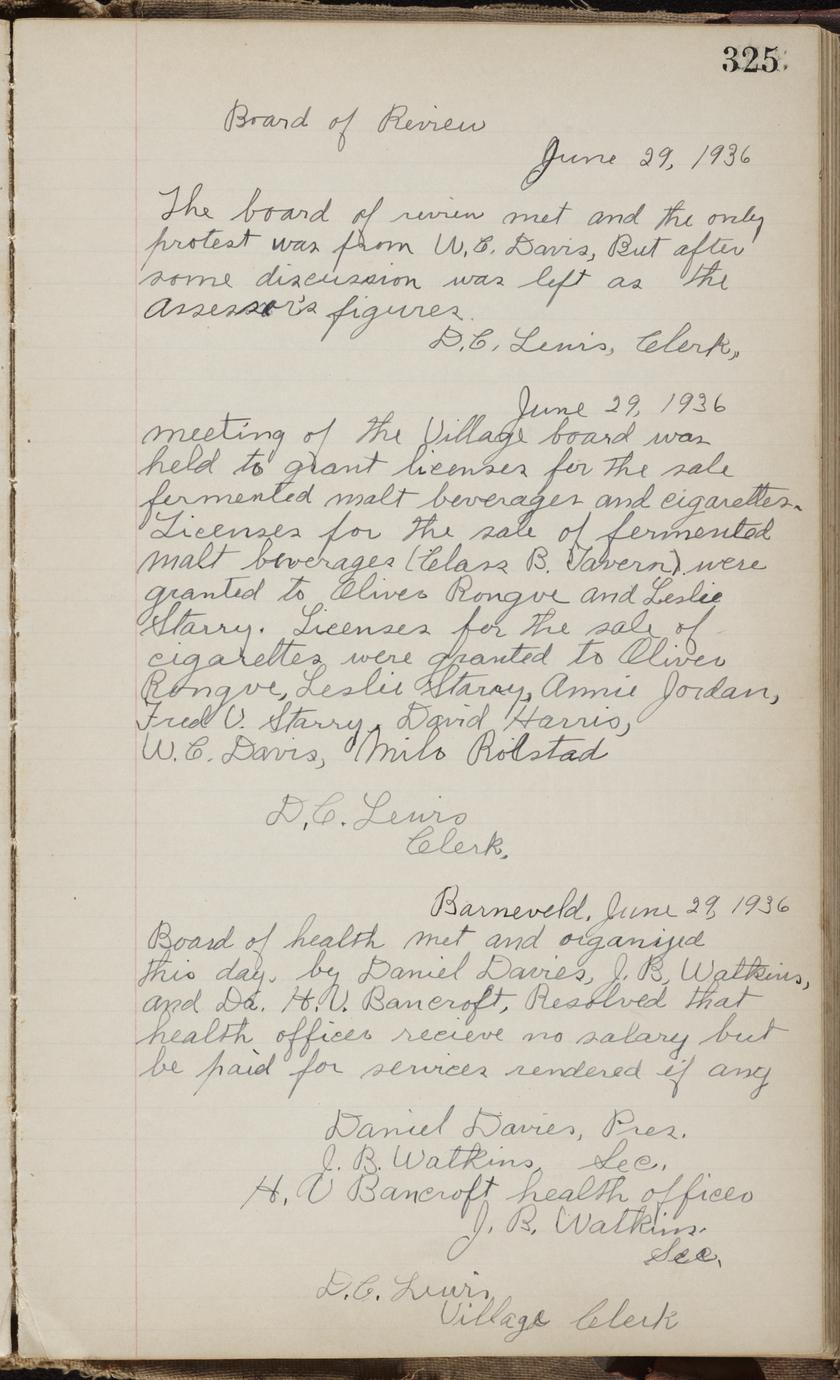 325
Board of Review
June 29, 1936
The board of review met and the only
protest was from W.C. Davis, But after
some discussion was left as the
Assessor's figures.
D.C. Lewis, Clerk,
June 29, 1936
meeting of the Village board was
held to grant licenses for the sale
fermented malt beverages and cigarettes.
Licenses for the sale of fermented
malt beverages (Class B. Tavern) were
granted to Oliver Rongve and Leslie
Starry. Licenses for the sale of
cigarettes were granted to Oliver
Rongve, Leslie Starry, Annie Jordan,
Fred V. Starry, David Harris,
W.C. Davis, Milo Rolstad
D.C. Lewis
Clerk.
Barneveld, June 29, 1936
Board of health met and organized
this day. by Daniel Davies, J.B. Watkins,
and Dr. H.V. Bancroft, Resolved that
health officer recieve no salary but
be paid for services rendered if any
Daniel Davies, Pres.
J.B. Watkins, Sec.
H.V Bancroft health officer
J.B. Watkins.
Sec.
D.C. Lewis
Village Clerk